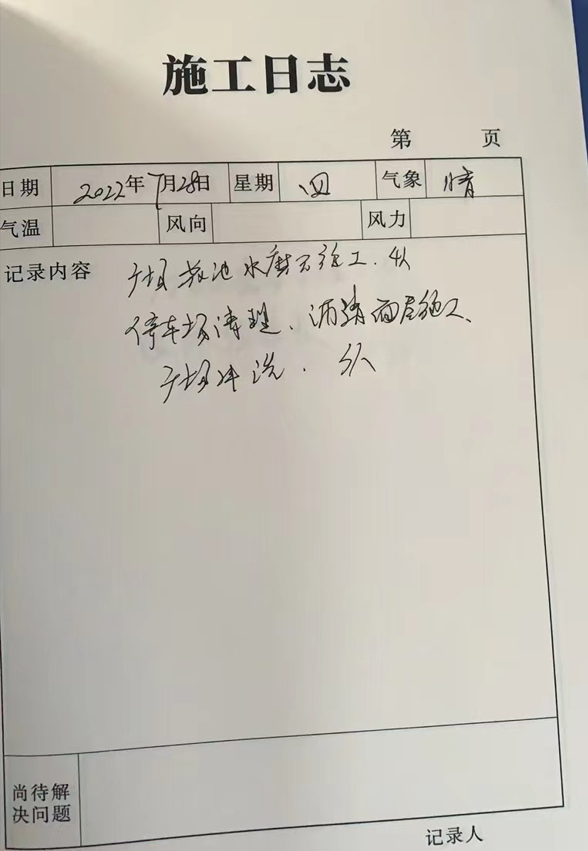 施工日志
第 页
日期 2022年7月28日 星期 四 气象 晴
气温 风向 风力
记录内容 广场花池水磨石施工. 4人
停车场清理、沥青面层施工、
广场冲洗. 5人
尚待解
决问题
记录人